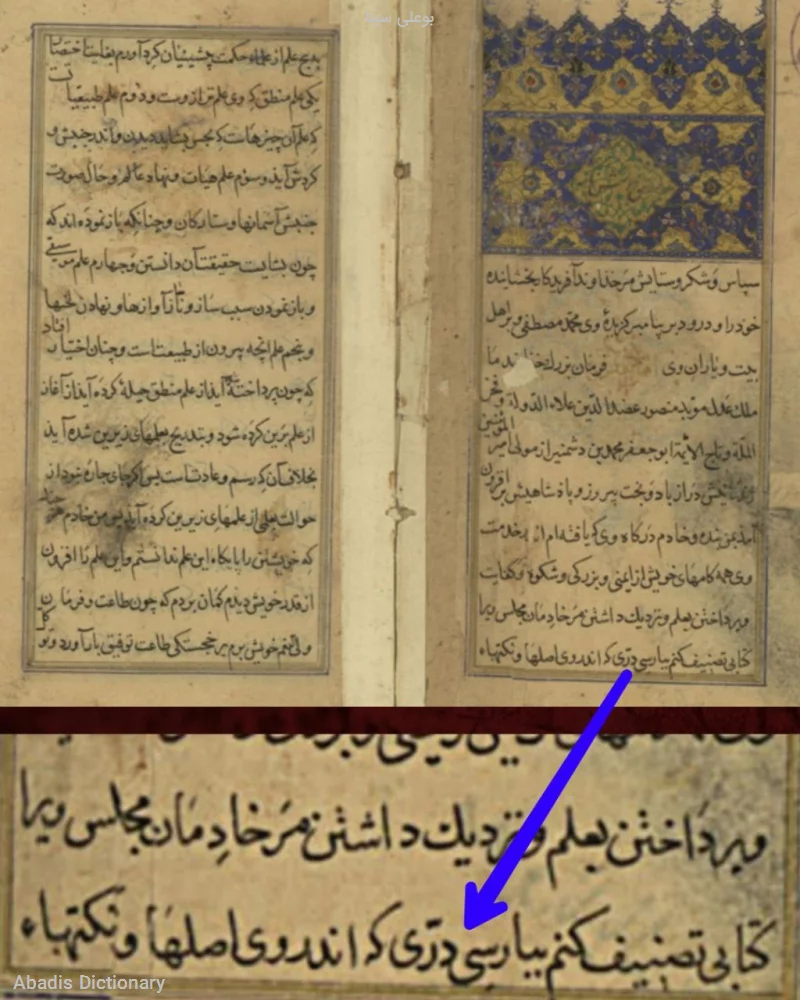 بوعلی سینا
سپاس وشکر وستایش مر خداوند آفریدگار بخشاینده
خرد را و درود بر پیامبر گزیدهٔ وی محمد مصطفی و بر اهل
بیت و یاران وی فرمان بزرك خداوند ما
ملك عادل موید منصور عضد الدین علاء الدوله وفخر
المله وتاج الایمه ابو جعفر محمد بن دشمنزیار مولی امیر المؤمنین
زندگانیش دراز باد و بخت پیروز و پاذشاهیش بر افزون
آمد بمن بنده و خادم درگاه وی که یافته ام اندر خدمت
وی همه کامهای خویش از ایمنی و بزرگی و شکوه و کفایت
وپرداختن بعلم ونزدیك داشتن مر خادمان مجلس ویرا
کتابی تصنیف کنم بپارسی دری که اندر وی اصلها ونکتهاء
پنج علم از علمهاء حکمت پیشینیان گرد آورم بغایت اختصار
یکی علم منطق که وی علم ترازوست و دوم علم طبیعیات
که علم آن چیزهاست که بحس بشاید دیدن و اندر جنبش و
گردش آیذ وسوم علم هیات ونهاد عالم وحال صورت
جنبش آسمانها وستارگان وچنانکه باز نموذه اند که
چون بشایست حقیقت آن دانستن وچهارم علم موسیقی
وباز نمودن سبب ساز وناساز آوازها ونهادن لحنها
وپنجم علم آنچه بیرون از طبیعت است وچنان اختیار افتاد
که چون پرداخته آید از علم منطق حیله کرده آید از آغاز
از علم برین کرده شود وبتدریج بعلمهای زیرین شده آید
بخلاف آن که رسم وعادت است پس اگر جای چاره نبود از
حوالت بعلمی از علمهای زیرین کرده آید پس من خادم هر چند
که خویشتن را پایگاه این علم ندانستم واین علم را افزون
از قدر خویش دیدم گمان بردم که چون طاعت وفرمان
ولی نعمت خویش برم بر خجستگی طاعت توفیق بار آورد وتوکل
وپرداختن بعلم ونزدیك داشتن مر خادمان مجلس ویرا
کتابی تصنیف کنم بپارسی دری که اندر وی اصلها ونکتهاء
Abadis Dictionary